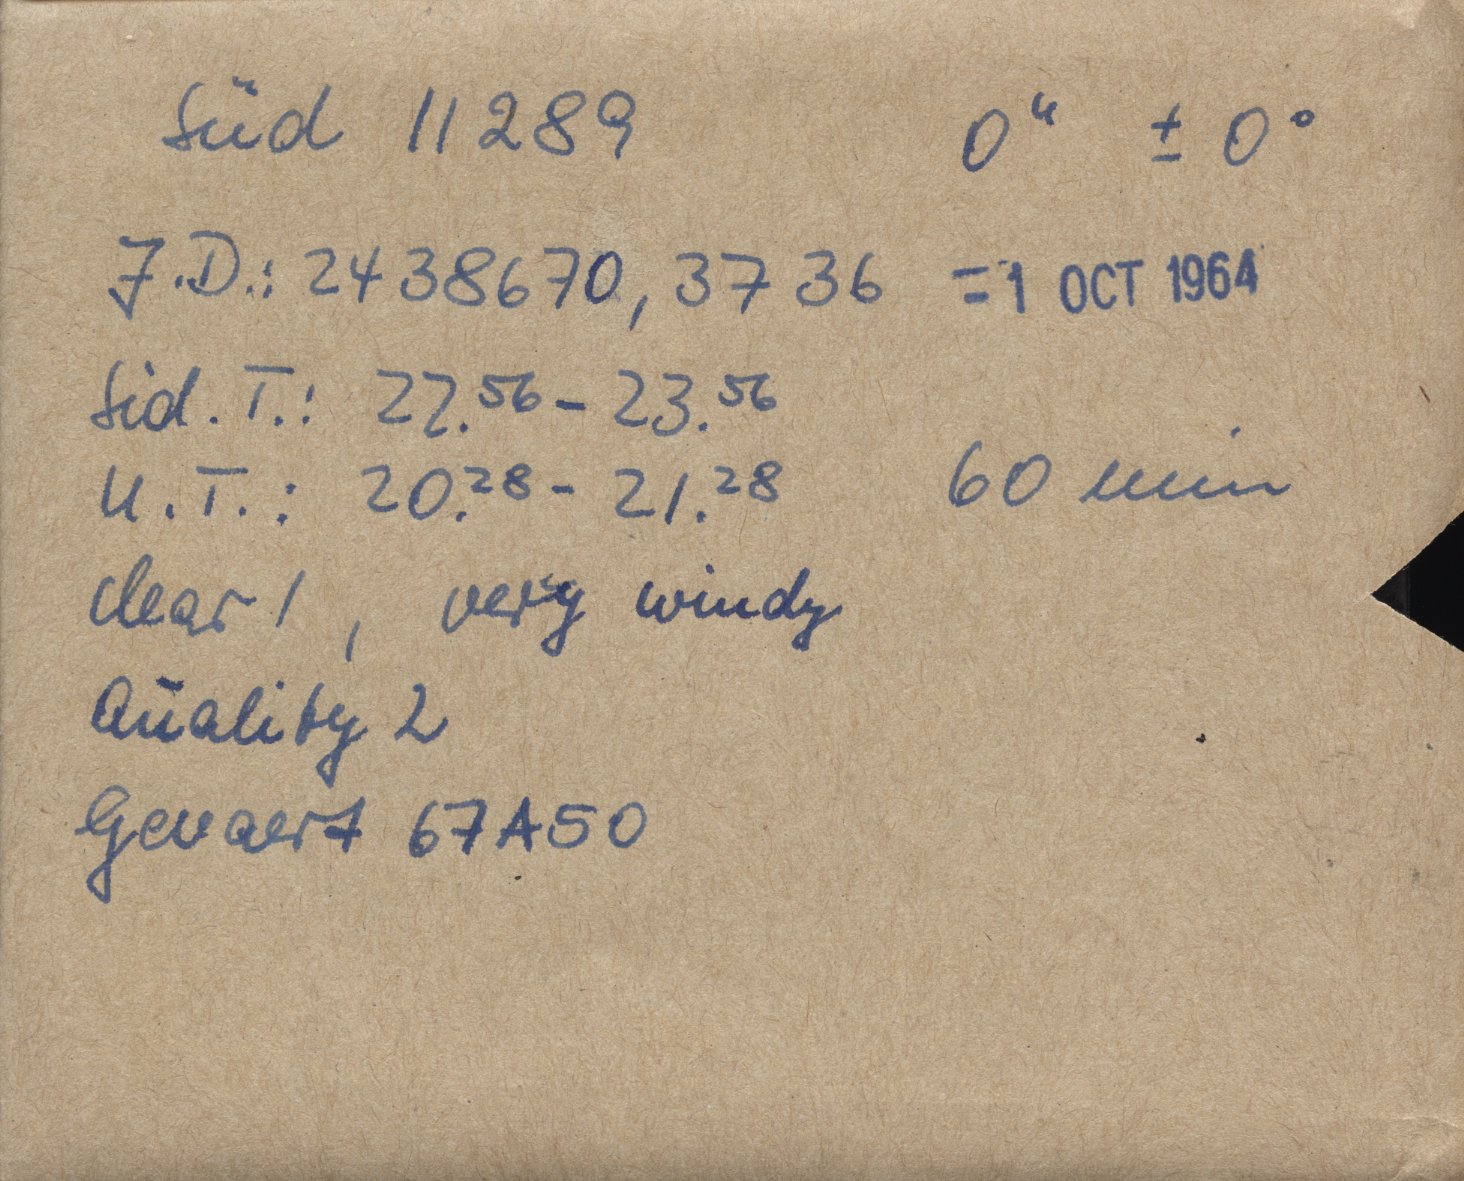 Süd 11289 0ʰ ± 0°
J.D.: 2438670,3736 = -1 OCT 1964
Sid. T.: 22.⁵⁶ - 23.⁵⁶
U.T.: 20.²⁸ - 21.²⁸ 60 min
clear!, very windy
Quality 2
Gevaert 67A50